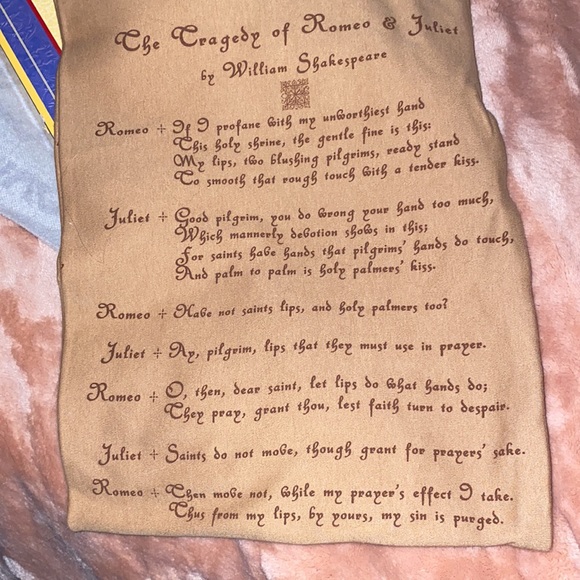 The Tragedy of Romeo & Juliet
by William Shakespeare
Romeo + If I profane with my unworthiest hand
This holy shrine, the gentle fine is this:
My lips, two blushing pilgrims, ready stand
To smooth that rough touch with a tender kiss.
Juliet + Good pilgrim, you do wrong your hand too much,
Which mannerly devotion shows in this;
For saints have hands that pilgrims' hands do touch,
And palm to palm is holy palmers' kiss.
Romeo + Have not saints lips, and holy palmers too?
Juliet + Ay, pilgrim, lips that they must use in prayer.
Romeo + O, then, dear saint, let lips do what hands do;
They pray, grant thou, lest faith turn to despair.
Juliet + Saints do not move, though grant for prayers' sake.
Romeo + Then move not, while my prayer's effect I take.
Thus from my lips, by yours, my sin is purged.